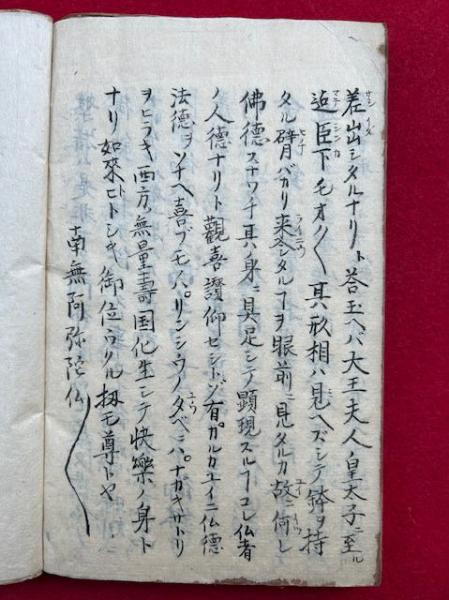 差出シタルナリト答玉ヘバ大王夫人皇太子ニ至ル
迄臣下モオノ〱其形相ハ見ヘズシテ鉢ヲ持
タル臂バカリ来シタルヿヲ眼前ニ見タルカ故ニ何レ
佛德スナワチ其ノ身ニ具足シテ顕現スルヿコレ仏者
ノ人德ナリト觀喜讃仰セシトゾ有ガルカユイニ仏德
法德ヲソナヘ喜ブモノハリンシウノタベニハナガキサトリ
ヲヒラキ西方無量壽国化生シテ快樂ノ身ト
ナリ如來ヒトシキ御位ワタル扨モ尊トヤ
南無阿弥陀仏